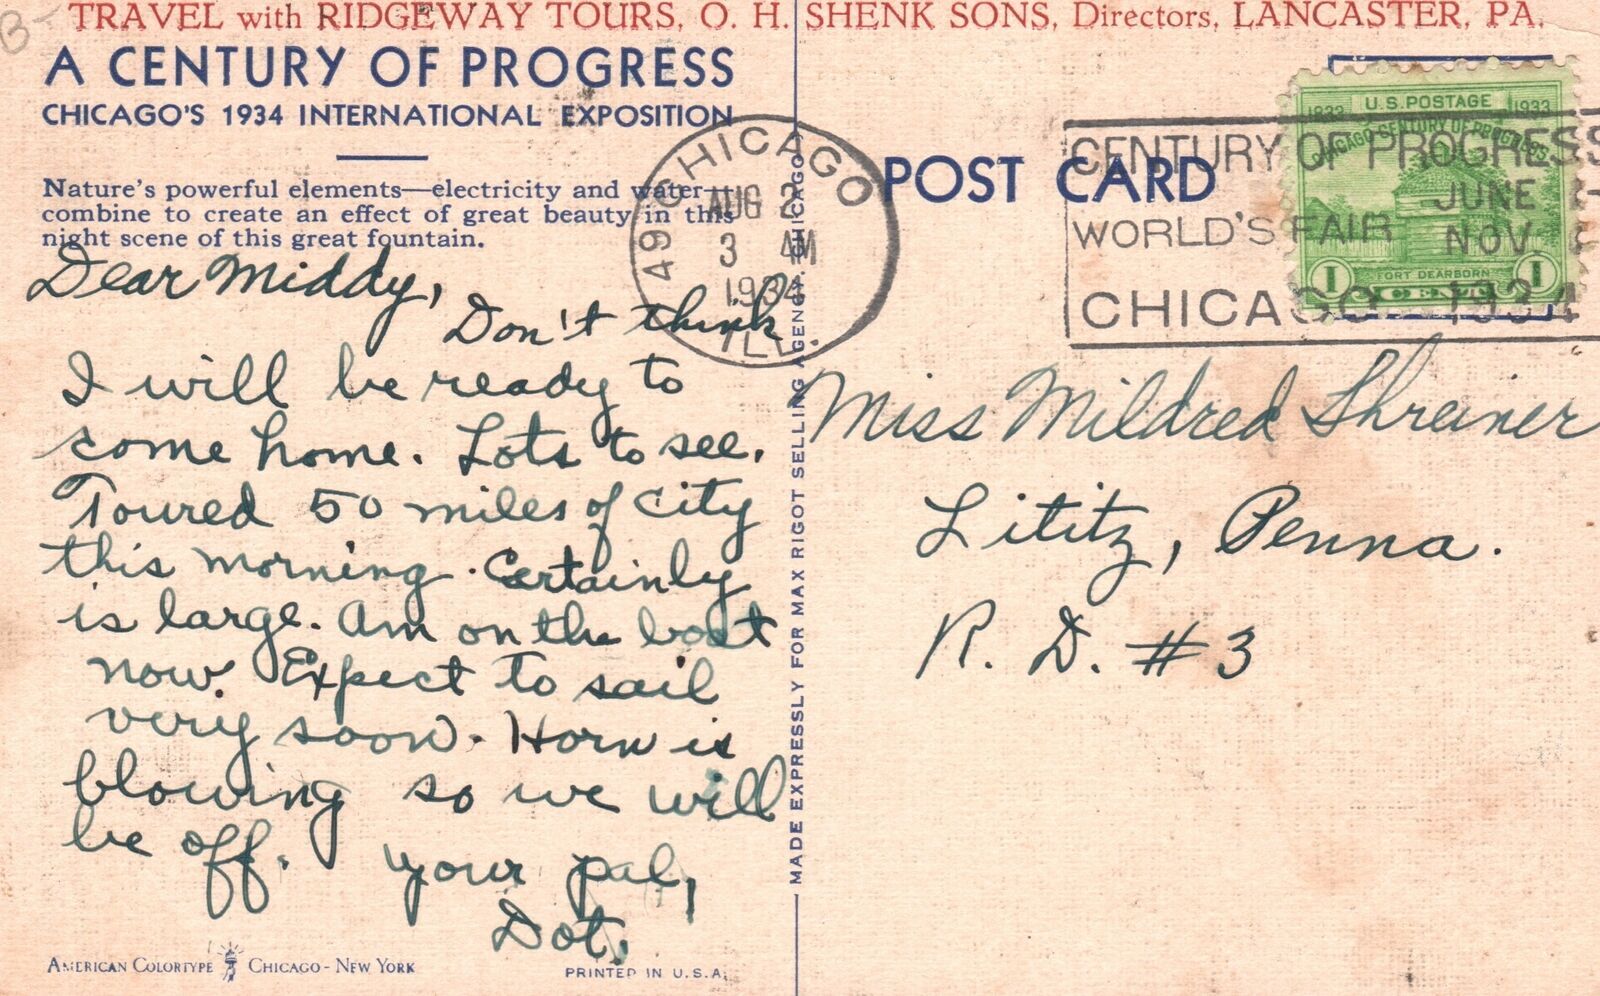 B-
TRAVEL with RIDGEWAY TOURS, O. H. SHENK SONS, Directors, LANCASTER, PA.
A CENTURY OF PROGRESS
CHICAGO'S 1934 INTERNATIONAL EXPOSITION
Nature's powerful elements—electricity and water—
combine to create an effect of great beauty in this
night scene of this great fountain.
Dear Middy,
Don't think
I will be ready to
come home. Lots to see.
Toured 50 miles of city
this morning. Certainly
is large. Am on the boat
now. Expect to sail
very soon. Horn is
blowing so we will
be off. Your pal,
Dot.
AMERICAN COLORTYPE CHICAGO - NEW YORK
PRINTED IN U.S.A.
MADE EXPRESSLY FOR MAX RIGOT SELLING AGENCY, CHICAGO
CHICAGO
49
AUG 2
3 AM
1934
ILL.
POST CARD
CENTURY OF PROGRESS
JUNE
WORLD'S FAIR
NOV
CHICAGO 1934
U.S. POSTAGE
1833 1933
CHICAGO CENTURY OF PROGRESS
FORT DEARBORN
1 CENTS 1
Miss Mildred Shreiner
Lititz, Penna.
R. D. #3